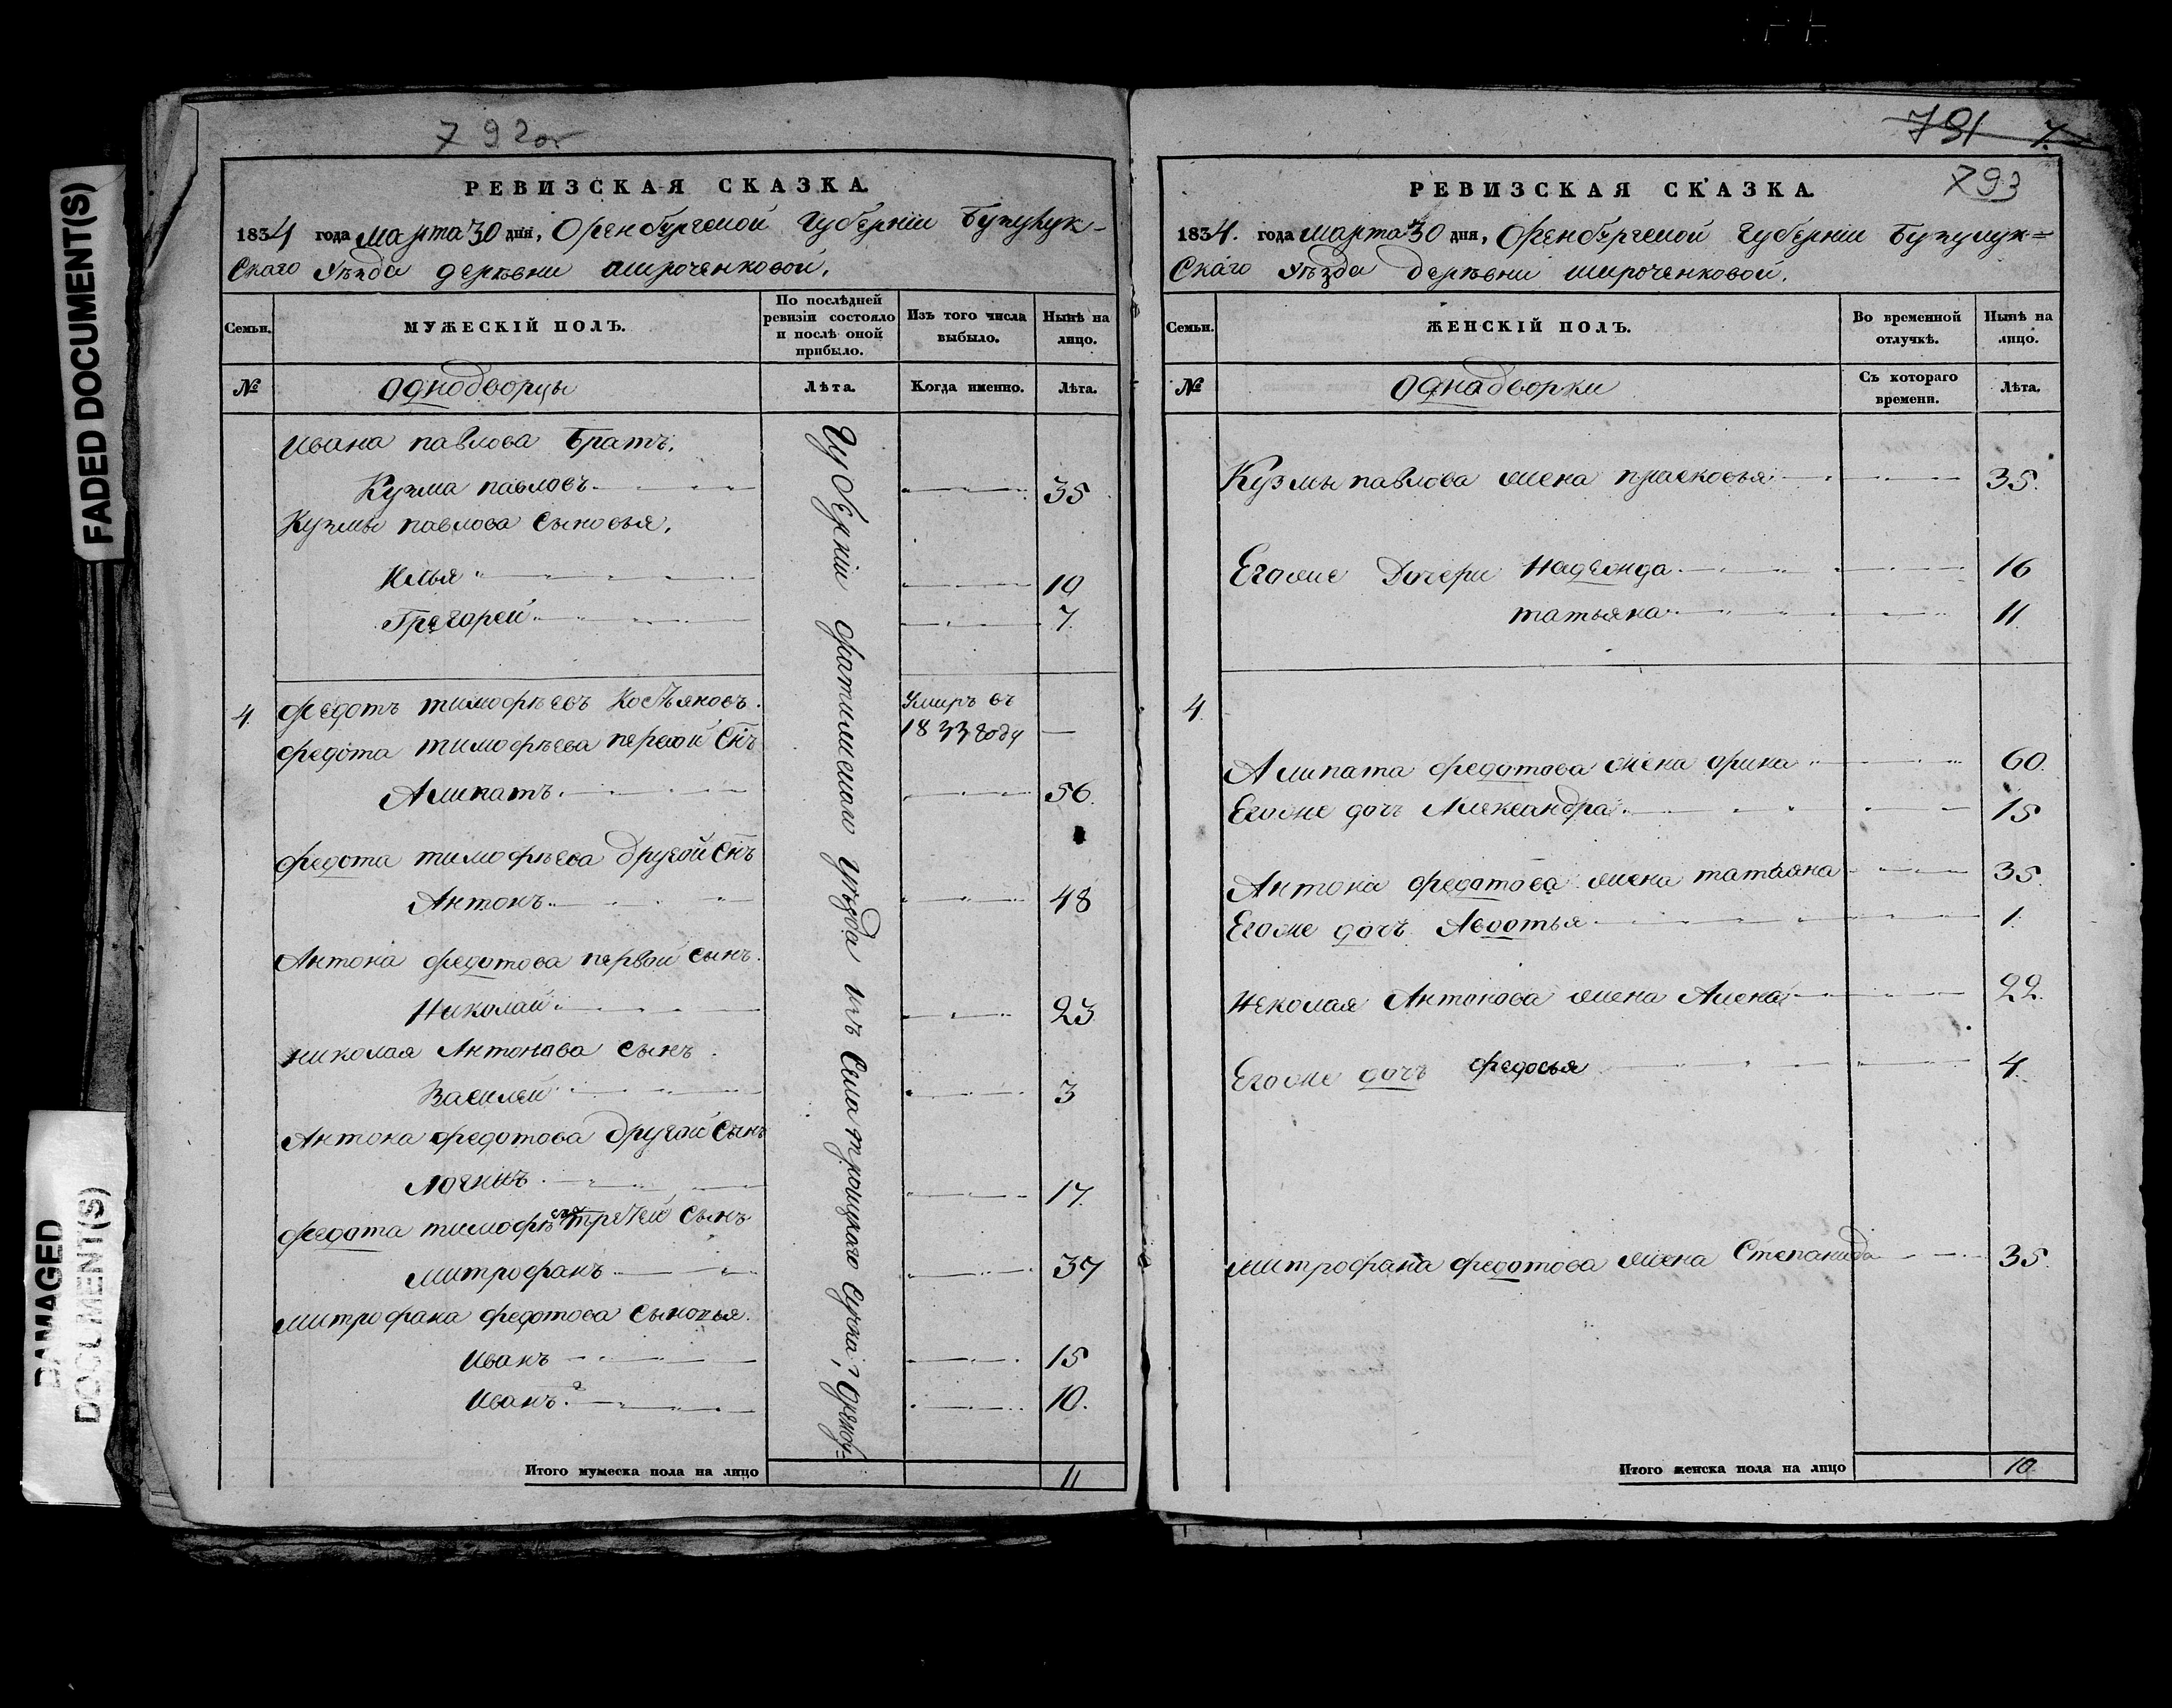 FADED DOCUMENT(S)
DAMAGED
DOCUMENT(S)
792об
РЕВИЗСКАЯ СКАЗКА.
1834 года марта 30 дня, Оренбургской Губерніи Бузулук-
Скаго Уѣзда деревни широченковой.
Семьи.
МУЖЕСКІЙ ПОЛЪ.
По послѣдней ревизіи состояло и послѣ оной прибыло.
Изъ того числа выбыло.
Нынѣ на лицо.
№
Однодворцы
Лѣта.
Когда именно.
Лѣта.
Ивана павлова Братъ.
Кузма павловъ 35
Кузмы павлова Сыновья.
Илья 10
Грегорей 7
4 Федотъ тимофѣевъ Умиръ въ
1833 году
Федота тимофѣева первой Снъ
Алипатъ 56.
Федота тимофѣева другой Снъ
Антонъ 48
Антона федотова первой Сынъ.
Николай 23
николая Антонова Сынъ.
Василей 3
Антона федотова другой Сынъ
Логинъ 17.
Федота тимофѣева третей Сынъ
Митрофанъ 37
Митрофана федотова Сыновья.
Иванъ 15
Иванъ 2 10.
Губерніи уѣзда изъ Села троицкого
Итого мужеска пола на лицо 11
791
793
РЕВИЗСКАЯ СКАЗКА.
1834. года марта 30 дня, Оренбургской Губерніи Бузулук=
Скаго Уѣзда деревни широченковой.
Семьи.
ЖЕНСКІЙ ПОЛЪ.
Во временной отлучкѣ.
Нынѣ на лицо.
№
Однадворки
Съ котораго времени.
Лѣта.
Кузмы павлова жена прасковья 35.
Егоже Дочери Надежда 16
татьяна 11
4.
Алипата федотова жена орина 60.
Егоже дочь Александра 15
Антона федотова жена татьяна 35.
Егоже дочь Авдотья 1.
Неколая Антонова жена Алена 22.
Егоже дочь федосья 4.
Митрофана федотова жена Степанида 35.
Итого женска пола на лицо 10.